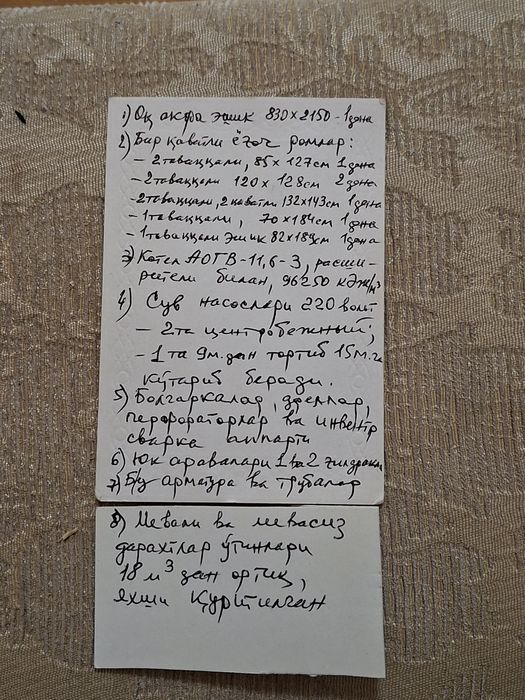 1) Оқ акфа эшик 830×2150-1дона
2) Бир қаватли ёғоч ромлар:
- 2таваққали, 85×127см 1дона
- 2таваққали 120×128см 2дона
- 2таваққали, 2қаватли 132×143см 1дона
- 1таваққали, 70×184см 1дона
- 1таваққали эшик 82×189см 1дона
3) Котел АОГВ-11,6-3, расши-
рители билан, 96250 кДж/м³
4) Сув насослари 220 вольт
- 2та центробежный;
- 1 та 9м.дан тортиб 15м.га
кўтариб беради.
5) Болгаркалар, дреллар,
перфораторлар ва инвентр
сварка аппарти
6) Юк аравалари 1 ва 2 ғилдракли
7) Б/у арматура ва трубалар
8) Мевали ва мевасиз
дарахтлар ўтинлари
18 м³ дан ортиқ,
яхши қуритилган